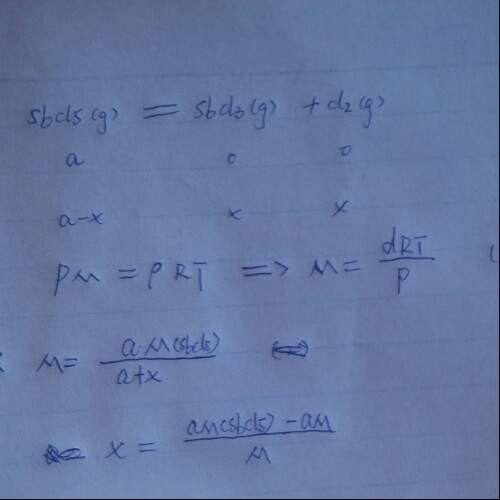 sbcl5(g) = sbcl3(g) + cl2(g)
a 0 0
a-x x x
PM = ρRT => M = dRT/P
M = a·M(sbcl5)/a+x
x = aM(sbcl5) - aM/M